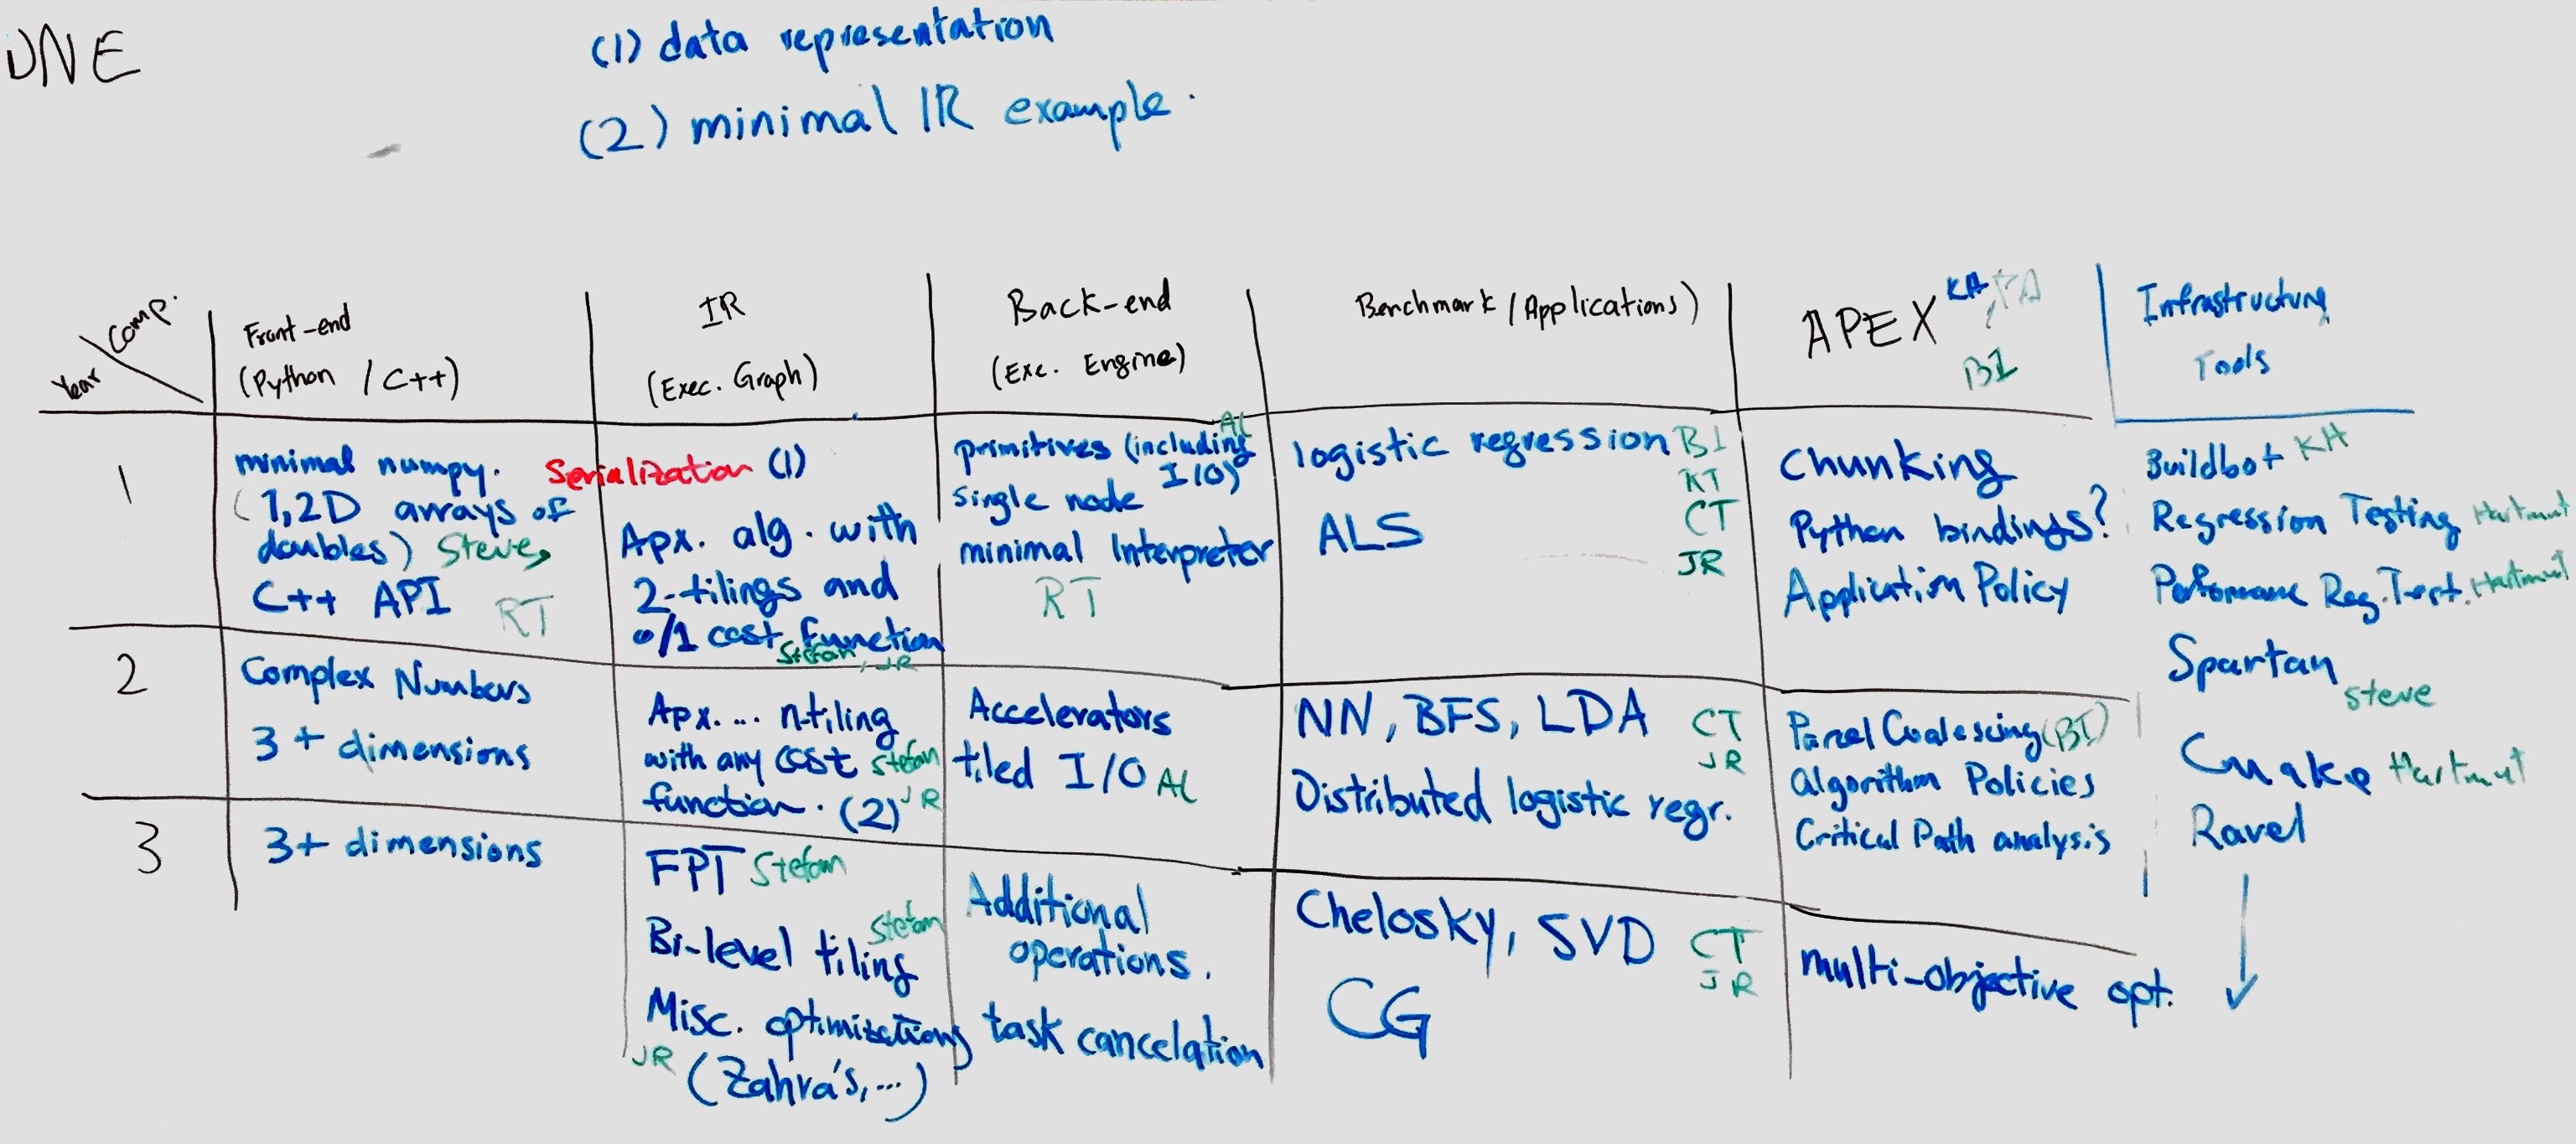 (1) data representation
(2) minimal IR example.
Comp.
Year
Front-end
(Python / C++)
IR
(Exec. Graph)
Back-end
(Exe. Engine)
Benchmark / (Applications)
APEX KH,
BI
Infrastructure
Tools
1
minimal numpy.
(1,2D arrays of
doubles) Steve,
C++ API RT
Serialization (1)
Apx. alg. with
2-tilings and
0/1 cost function
Stefan, JR
AL
primitives (including
I/O)
single node
minimal Interpreter
RT
logistic regression BI
RT
ALS CT
JR
Chunking
Python bindings?
Application Policy
Buildbot KH
Regression Testing Hartmut
Performance Reg. Test. Hartmut
Spartan
Steve
Cmake Hartmut
Ravel
2
Complex Numbers
3+ dimensions
Apx. ... n-tiling
with any cost Stefan
function. (2) JR
Accelerators
tiled I/O AL
NN, BFS, LDA CT
JR
Distributed logistic regr.
Parcel Coalescing (BI)
Algorithm Policies
Critical Path analysis
3
3+ dimensions
FPT Stefan
Bi-level tiling Stefan
Misc. optimizations
JR (Zahra's, ...)
Additional
operations.
task cancelation
Chelosky, SVD CT
JR
CG
multi-objective opt.